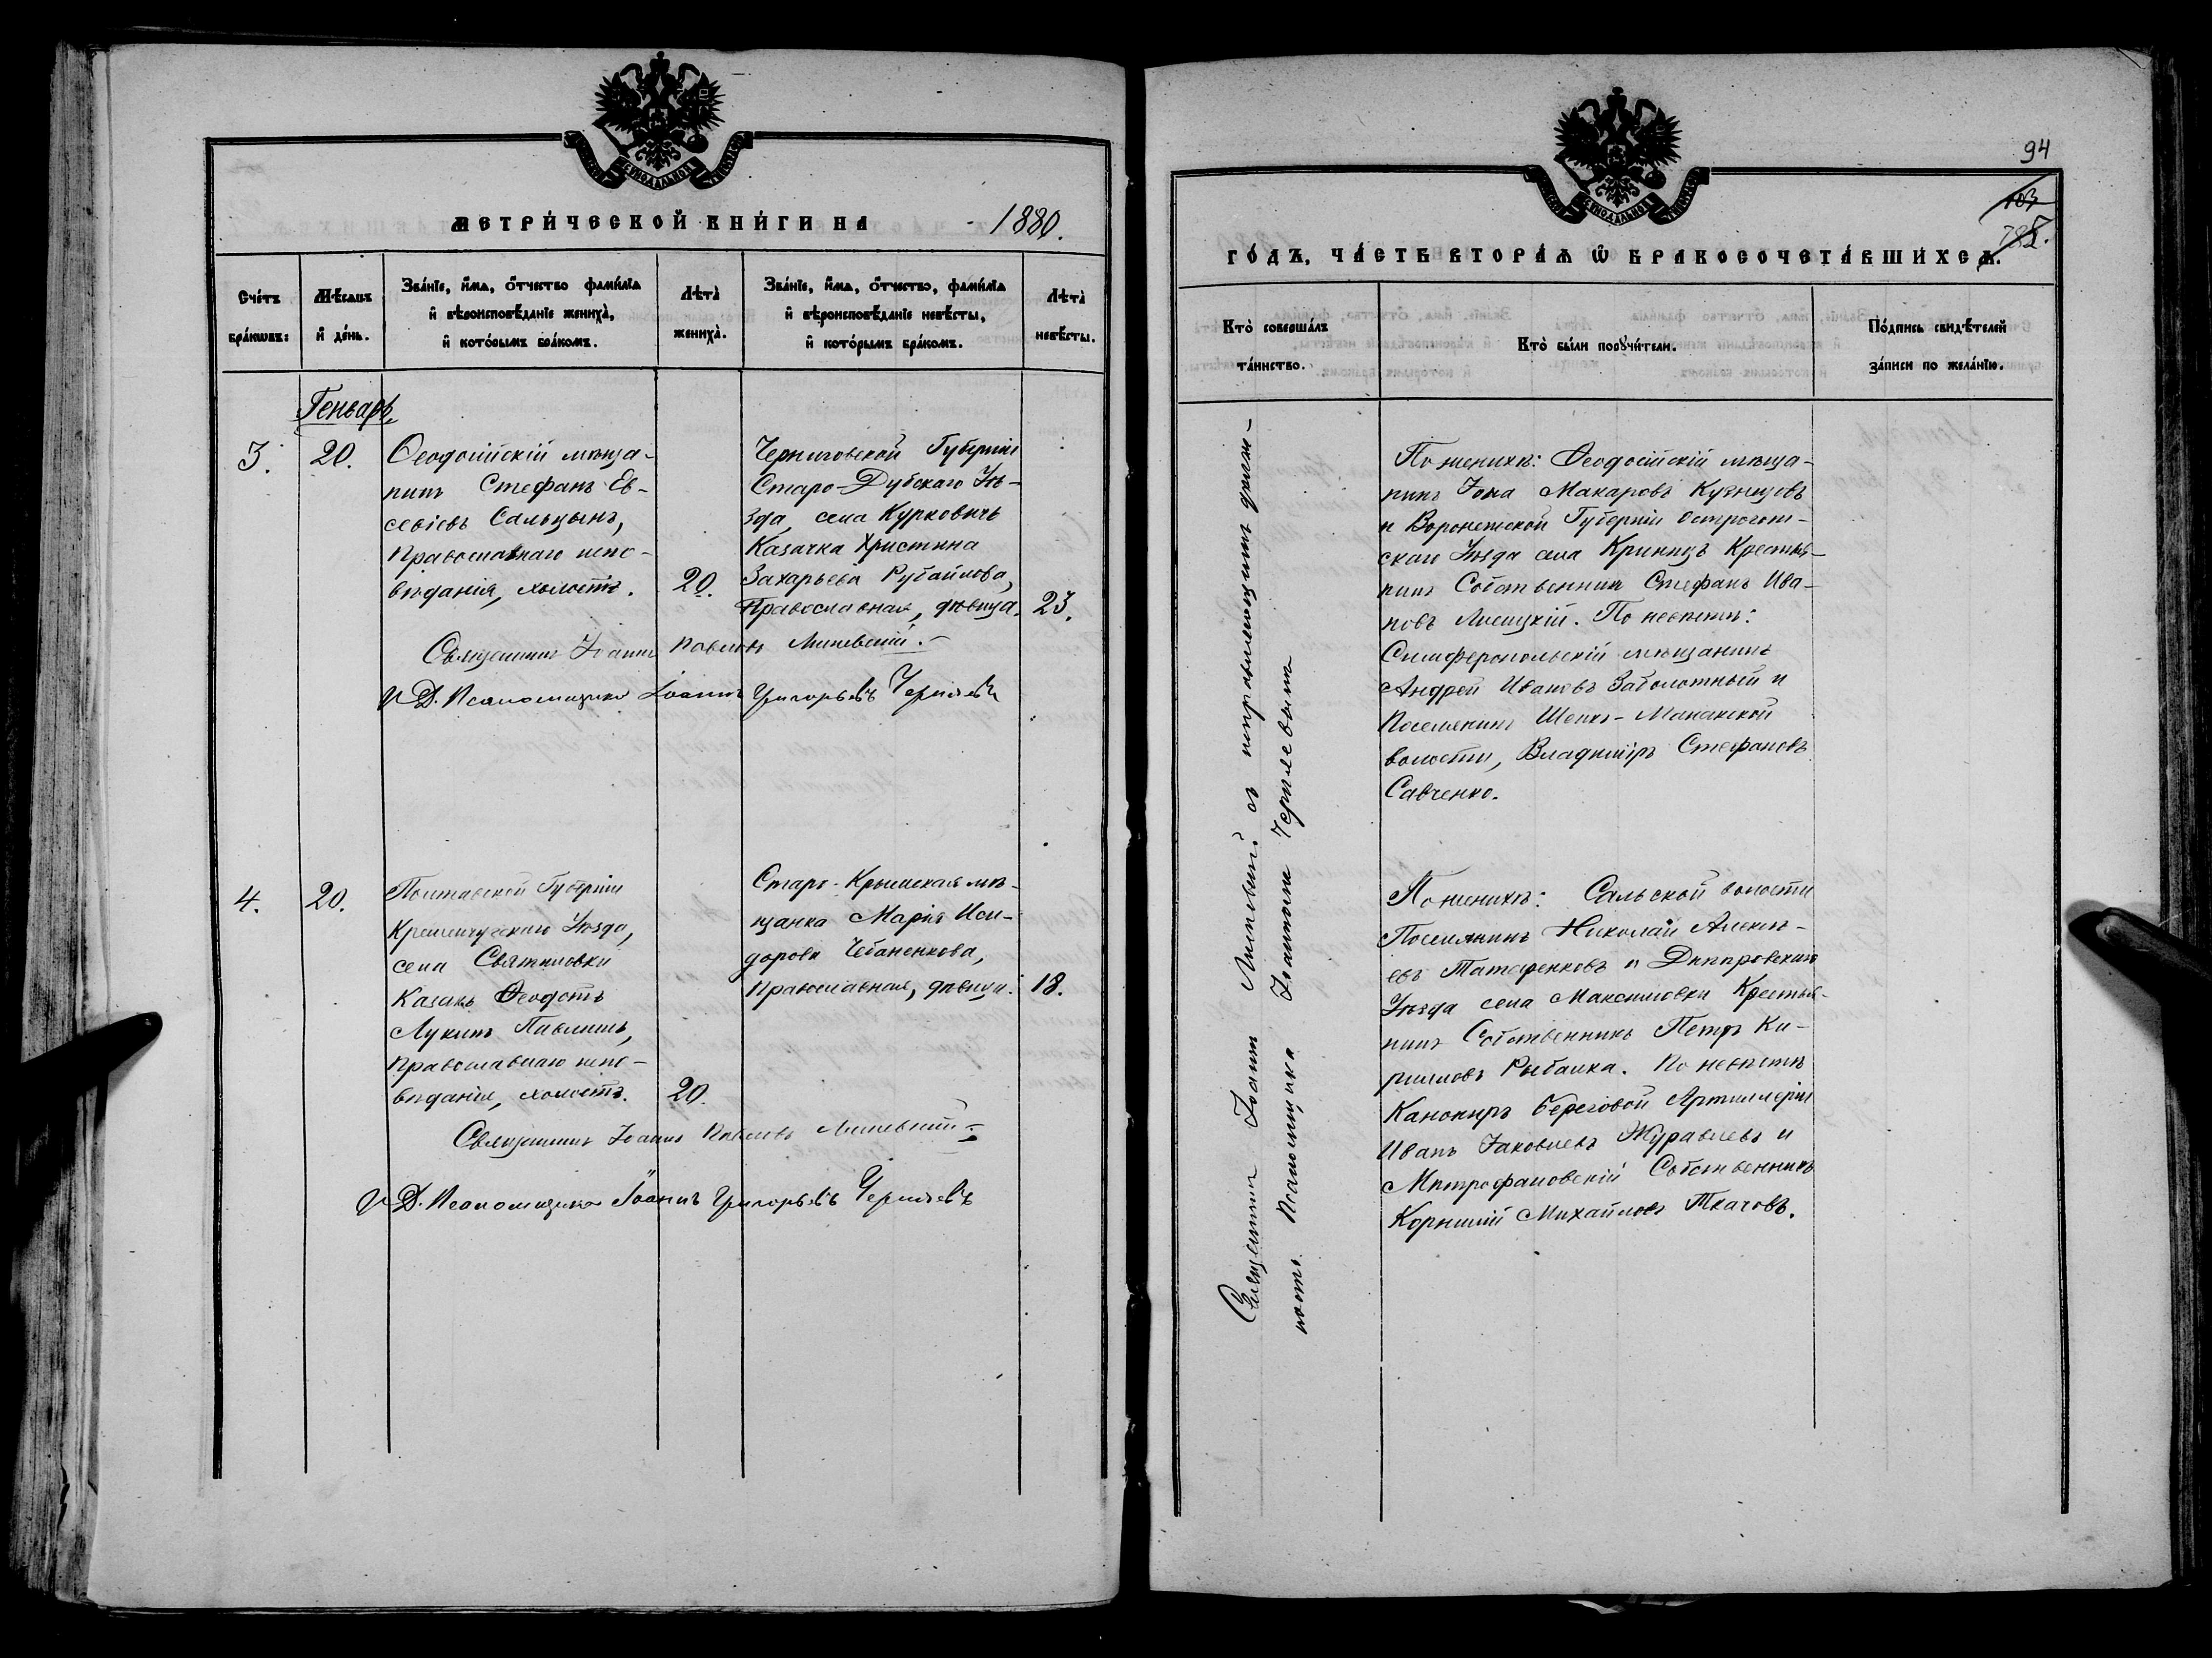 МЕТРИ́ЧЕСКОЙ КНИ́ГИ НА 1880.
Сче́тъ бра́кѡвъ:
Мѣ́сяцъ и де́нь.
Зва́нїе, и́мѧ, ѻ́тчество фами́лїѧ и вѣроисповѣ́данїе жениха̀, и кото́рымъ бра́комъ.
Лѣта̀ жениха̀.
Зва́нїе, и́мѧ, ѻ́тчество, фами́лїѧ и вѣроисповѣ́данїе невѣ́сты, и кото́рымъ бра́комъ.
Лѣта̀ невѣ́сты.
Геньварь
3.
20.
Ѳеодосійскій мѣща-
нинъ Стефанъ Ев-
севіевъ Сальцынъ,
Православнаго испо-
вѣданія, холостъ.
20.
Черниговской Губерніи
Старо-Дубскаго Уѣ-
зда, села Курковичъ
Казачка Христина
Захарьева Рубайлова,
Православная, дѣвица.
23.
Священникъ Іоаннъ Павловъ
И Д. Псаломщика Іоаннъ Григорьевъ Черняевъ
4.
20.
Полтавской Губерніи
Кременчугскаго Уѣзда,
села Святиловки
Казакъ Ѳеодотъ
Лукинъ Павлишъ,
Православнаго испо-
вѣданія, холостъ.
20.
Старо-Крымская мѣ-
щанка Марія Иси-
дорова Чебаненкова,
Православная, дѣвица.
18.
Священникъ Іоаннъ Павловъ
И Д. Псаломщика Іоаннъ Григорьевъ Черняевъ
94
103
ГО́ДЪ, ЧА́СТЬ ВТОРА́Ѧ Ѽ БРАКОСОЧЕТА́ВШИХСѦ.
Кто̀ соверша́лъ та́инство.
Кто̀ бы́ли порꙋчи́тели.
По́дпись свидѣ́телей за́писи по жела́нїю.
Священникъ Іоаннъ съ исправляющимъ долж-
ность Псаломщика Іоанномъ Черняевымъ
По женихѣ: Ѳеодосійскій мѣща-
нинъ Іона Макаровъ Кузнецовъ
и Воронежской Губерніи Острогож-
скаго Уѣзда села Криницъ Крестья-
нинъ Собственникъ Стефанъ Ива-
новъ Лисицкій. По невѣстѣ:
Симферопольскій мѣщанинъ
Андрей Ивановъ Заболотный и
Поселянинъ Шейхъ-Манакской
волости, Владиміръ Стефановъ
Савченко.
По женихѣ: Сальской волости
Поселянинъ Николай Алексѣ-
евъ Татаренковъ и Днѣпровскаго
Уѣзда села Максимовки Крестья-
нинъ Собственникъ Петръ Ки-
рилловъ Рыбалка. По невѣстѣ
Канониръ береговой Артиллеріи
Иванъ Іаковлевъ Журавлевъ и
Митрофановскій Собственникъ
Корнилій Михайловъ Ткачовъ.